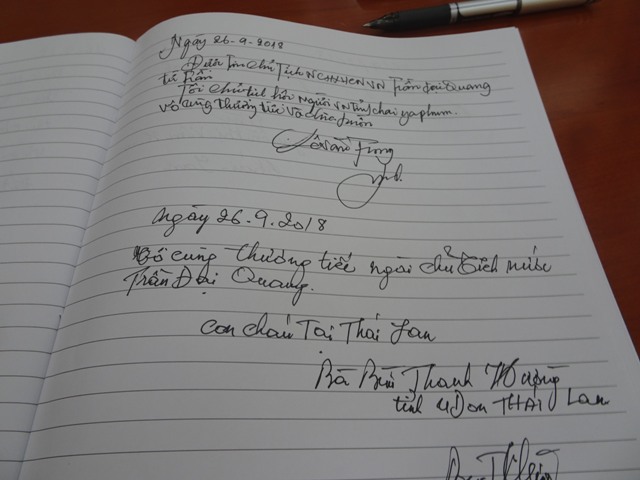 Ngày 26-9-2018
Được Tin Chủ Tịch NCHXHCNVN Trần Đại Quang
từ Trần
Tôi chủ tịch hội người VN tỉnh chai ya phum.
vô cùng thương tiếc và
ngày 26.9.2018
Vô cùng thương tiếc ngài chủ tịch nước
Trần Đại Quang.
con cháu Tại Thái Lan
Bà Bùi Thanh Hương
tỉnh uDon THAI Lan